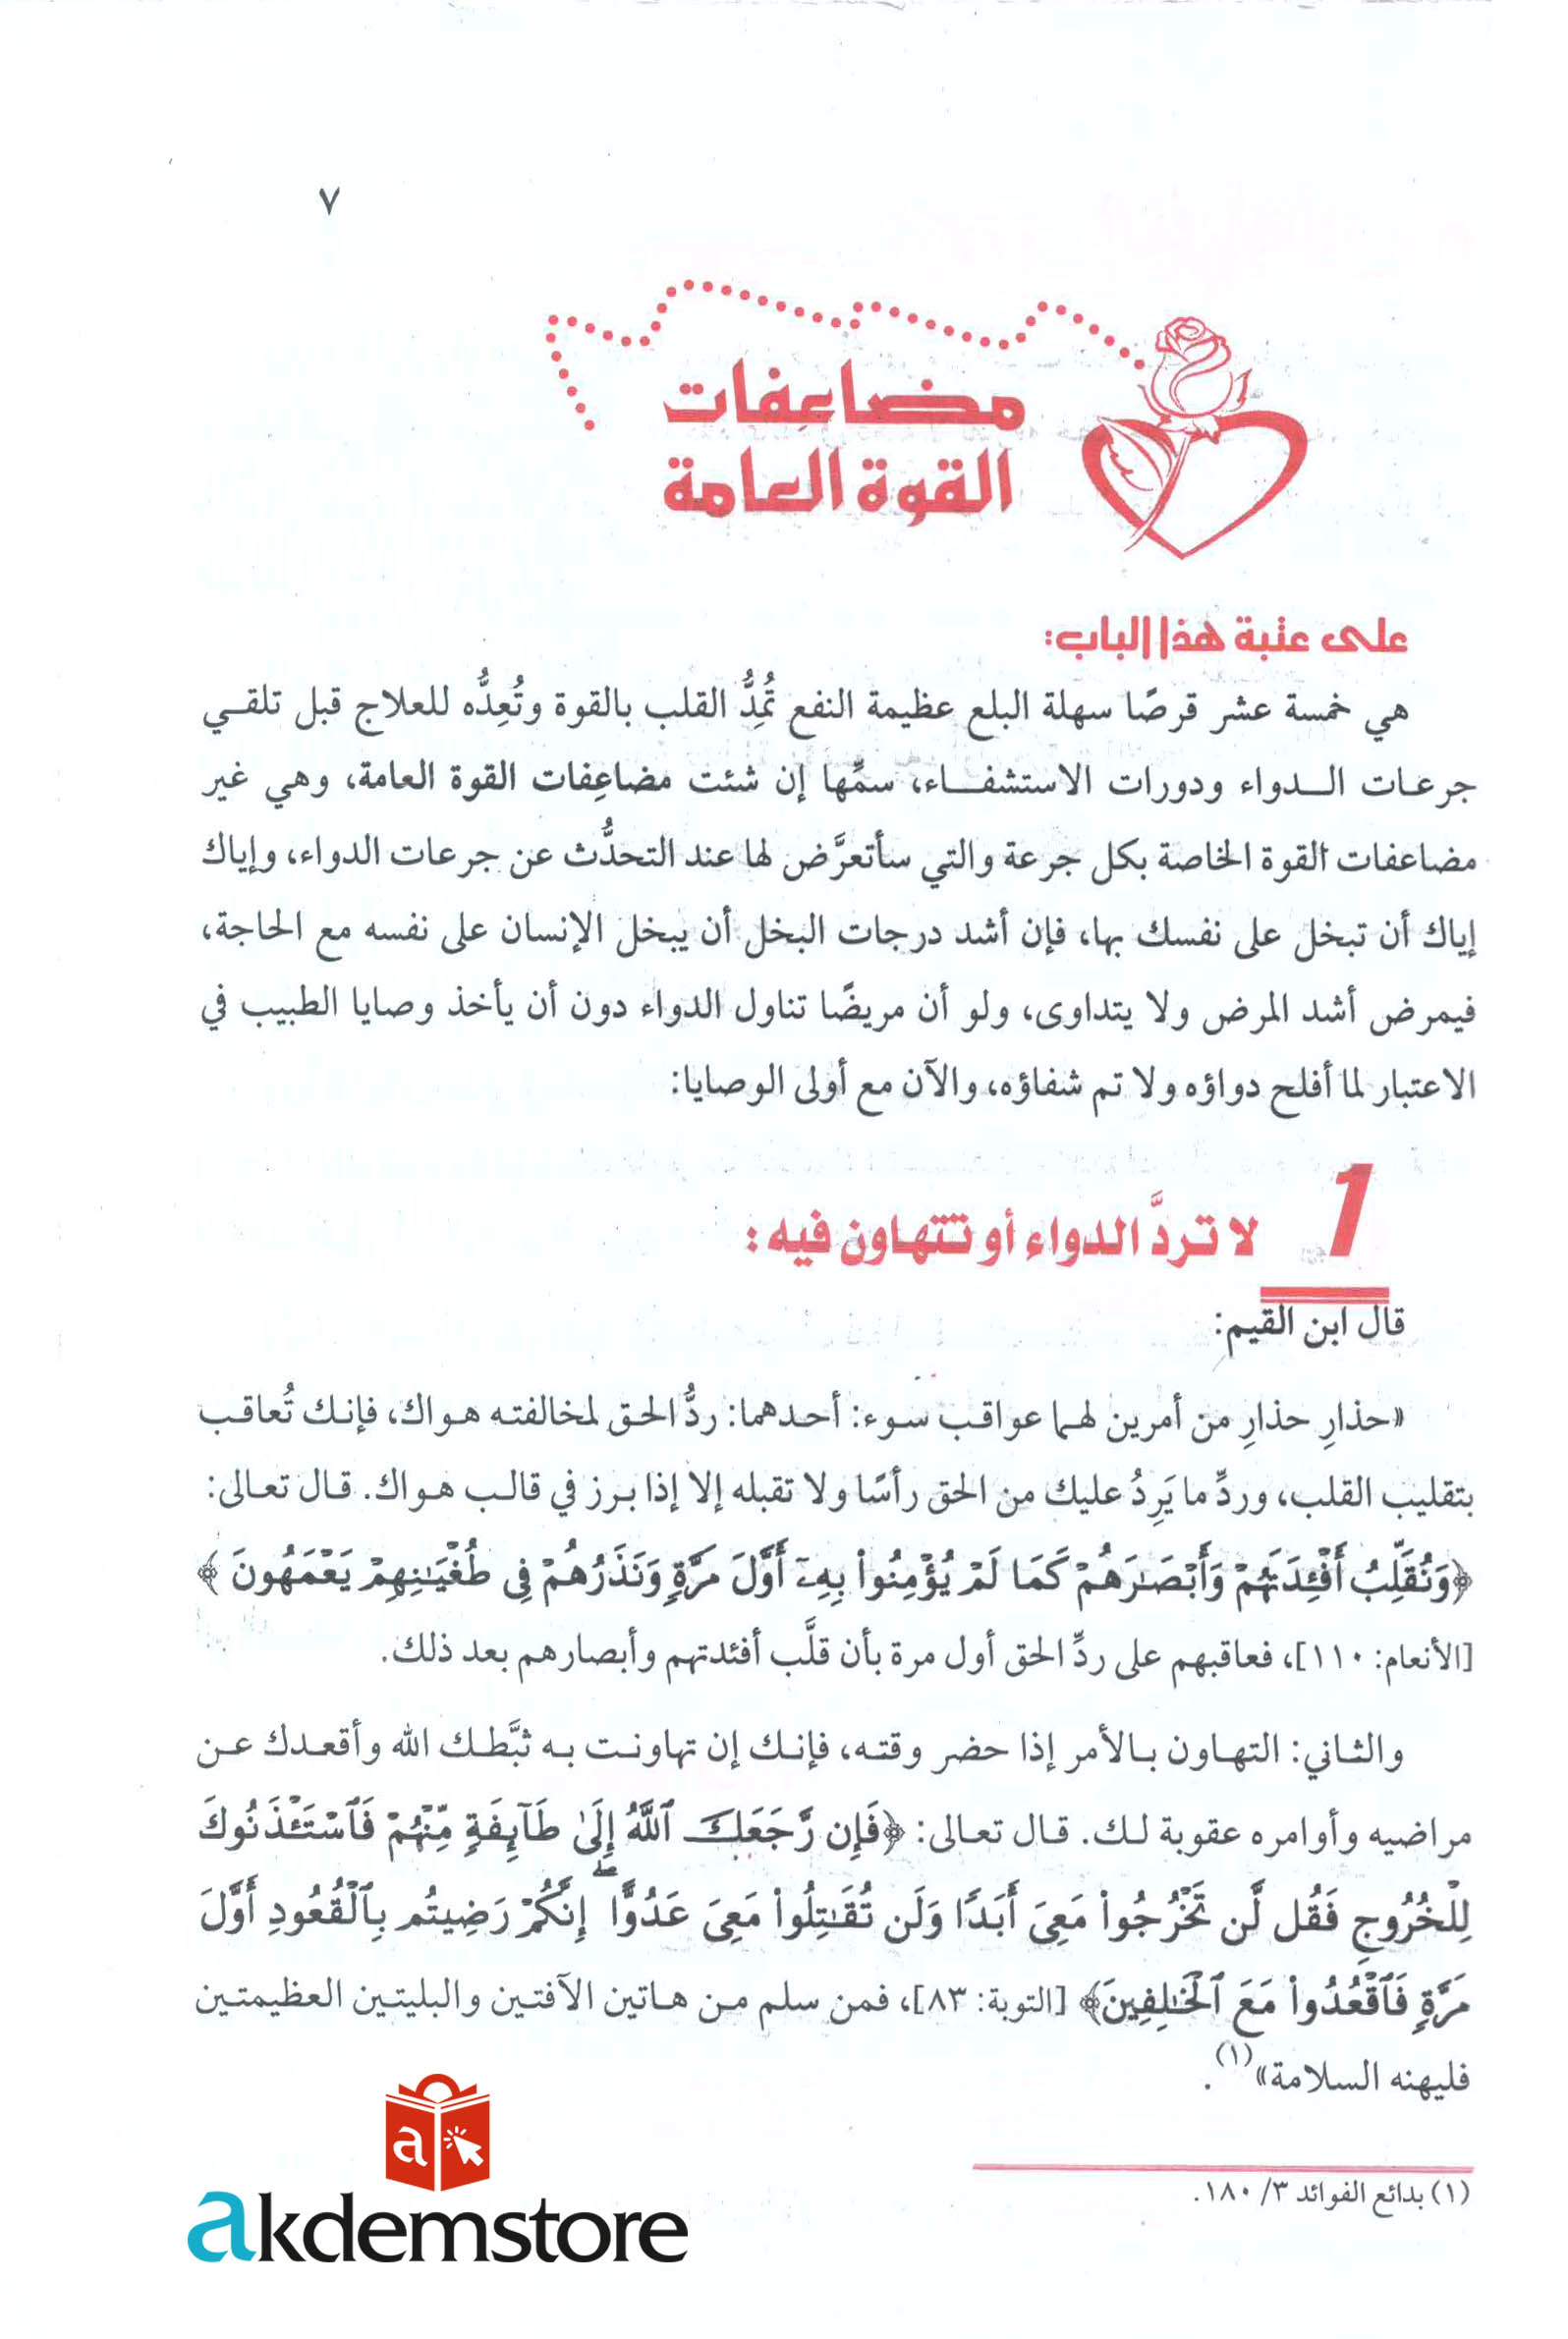 ٧
مضاعِفات
القوة العامة
على عتبة هذا الباب:
هي خمسة عشر قرصًا سهلة البلع عظيمة النفع تُمِدُّ القلب بالقوة وتُعِدُّه للعلاج قبل تلقي
جرعات الدواء ودورات الاستشفاء، سمِّها إن شئت مضاعِفات القوة العامة، وهي غير
مضاعفات القوة الخاصة بكل جرعة والتي سأتعرَّض لها عند التحدُّث عن جرعات الدواء، وإياك
إياك أن تبخل على نفسك بها، فإن أشد درجات البخل أن يبخل الإنسان على نفسه مع الحاجة،
فيمرض أشد المرض ولا يتداوى، ولو أن مريضًا تناول الدواء دون أن يأخذ وصايا الطبيب في
الاعتبار لما أفلح دواؤه ولا تم شفاؤه، والآن مع أولى الوصايا:
1 لا تردَّ الدواء أو تتهاون فيه:
قال ابن القيم:
«حذارِ حذارِ من أمرين لهما عواقب سوء: أحدهما: ردُّ الحق لمخالفته هواك، فإنك تُعاقب
بتقليب القلب، وردِّ ما يَرِدُ عليك من الحق رأسًا ولا تقبله إلا إذا برز في قالب هواك. قال تعالى:
﴿وَنُقَلِّبُ أَفْـِٔدَتَهُمْ وَأَبْصَـٰرَهُمْ كَمَا لَمْ يُؤْمِنُوا۟ بِهِۦٓ أَوَّلَ مَرَّةٍ وَنَذَرُهُمْ فِى طُغْيَـٰنِهِمْ يَعْمَهُونَ﴾
[الأنعام: ١١٠]، فعاقبهم على ردِّ الحق أول مرة بأن قلَّب أفئدتهم وأبصارهم بعد ذلك.
والثاني: التهاون بالأمر إذا حضر وقته، فإنك إن تهاونت به ثبَّطك الله وأقعدك عن
مراضيه وأوامره عقوبة لك. قال تعالى: ﴿فَإِن رَّجَعَكَ ٱللَّهُ إِلَىٰ طَآئِفَةٍ مِّنْهُمْ فَٱسْتَـْٔذَنُوكَ
لِلْخُرُوجِ فَقُل لَّن تَخْرُجُوا۟ مَعِىَ أَبَدًا وَلَن تُقَـٰتِلُوا۟ مَعِىَ عَدُوًّا ۖ إِنَّكُمْ رَضِيتُم بِٱلْقُعُودِ أَوَّلَ
مَرَّةٍ فَٱقْعُدُوا۟ مَعَ ٱلْخَـٰلِفِينَ﴾ [التوبة: ٨٣]، فمن سلم من هاتين الآفتين والبليتين العظيمتين
فليهنه السلامة»(١).
(١) بدائع الفوائد ٣/ ١٨٠.
a
akdemstore